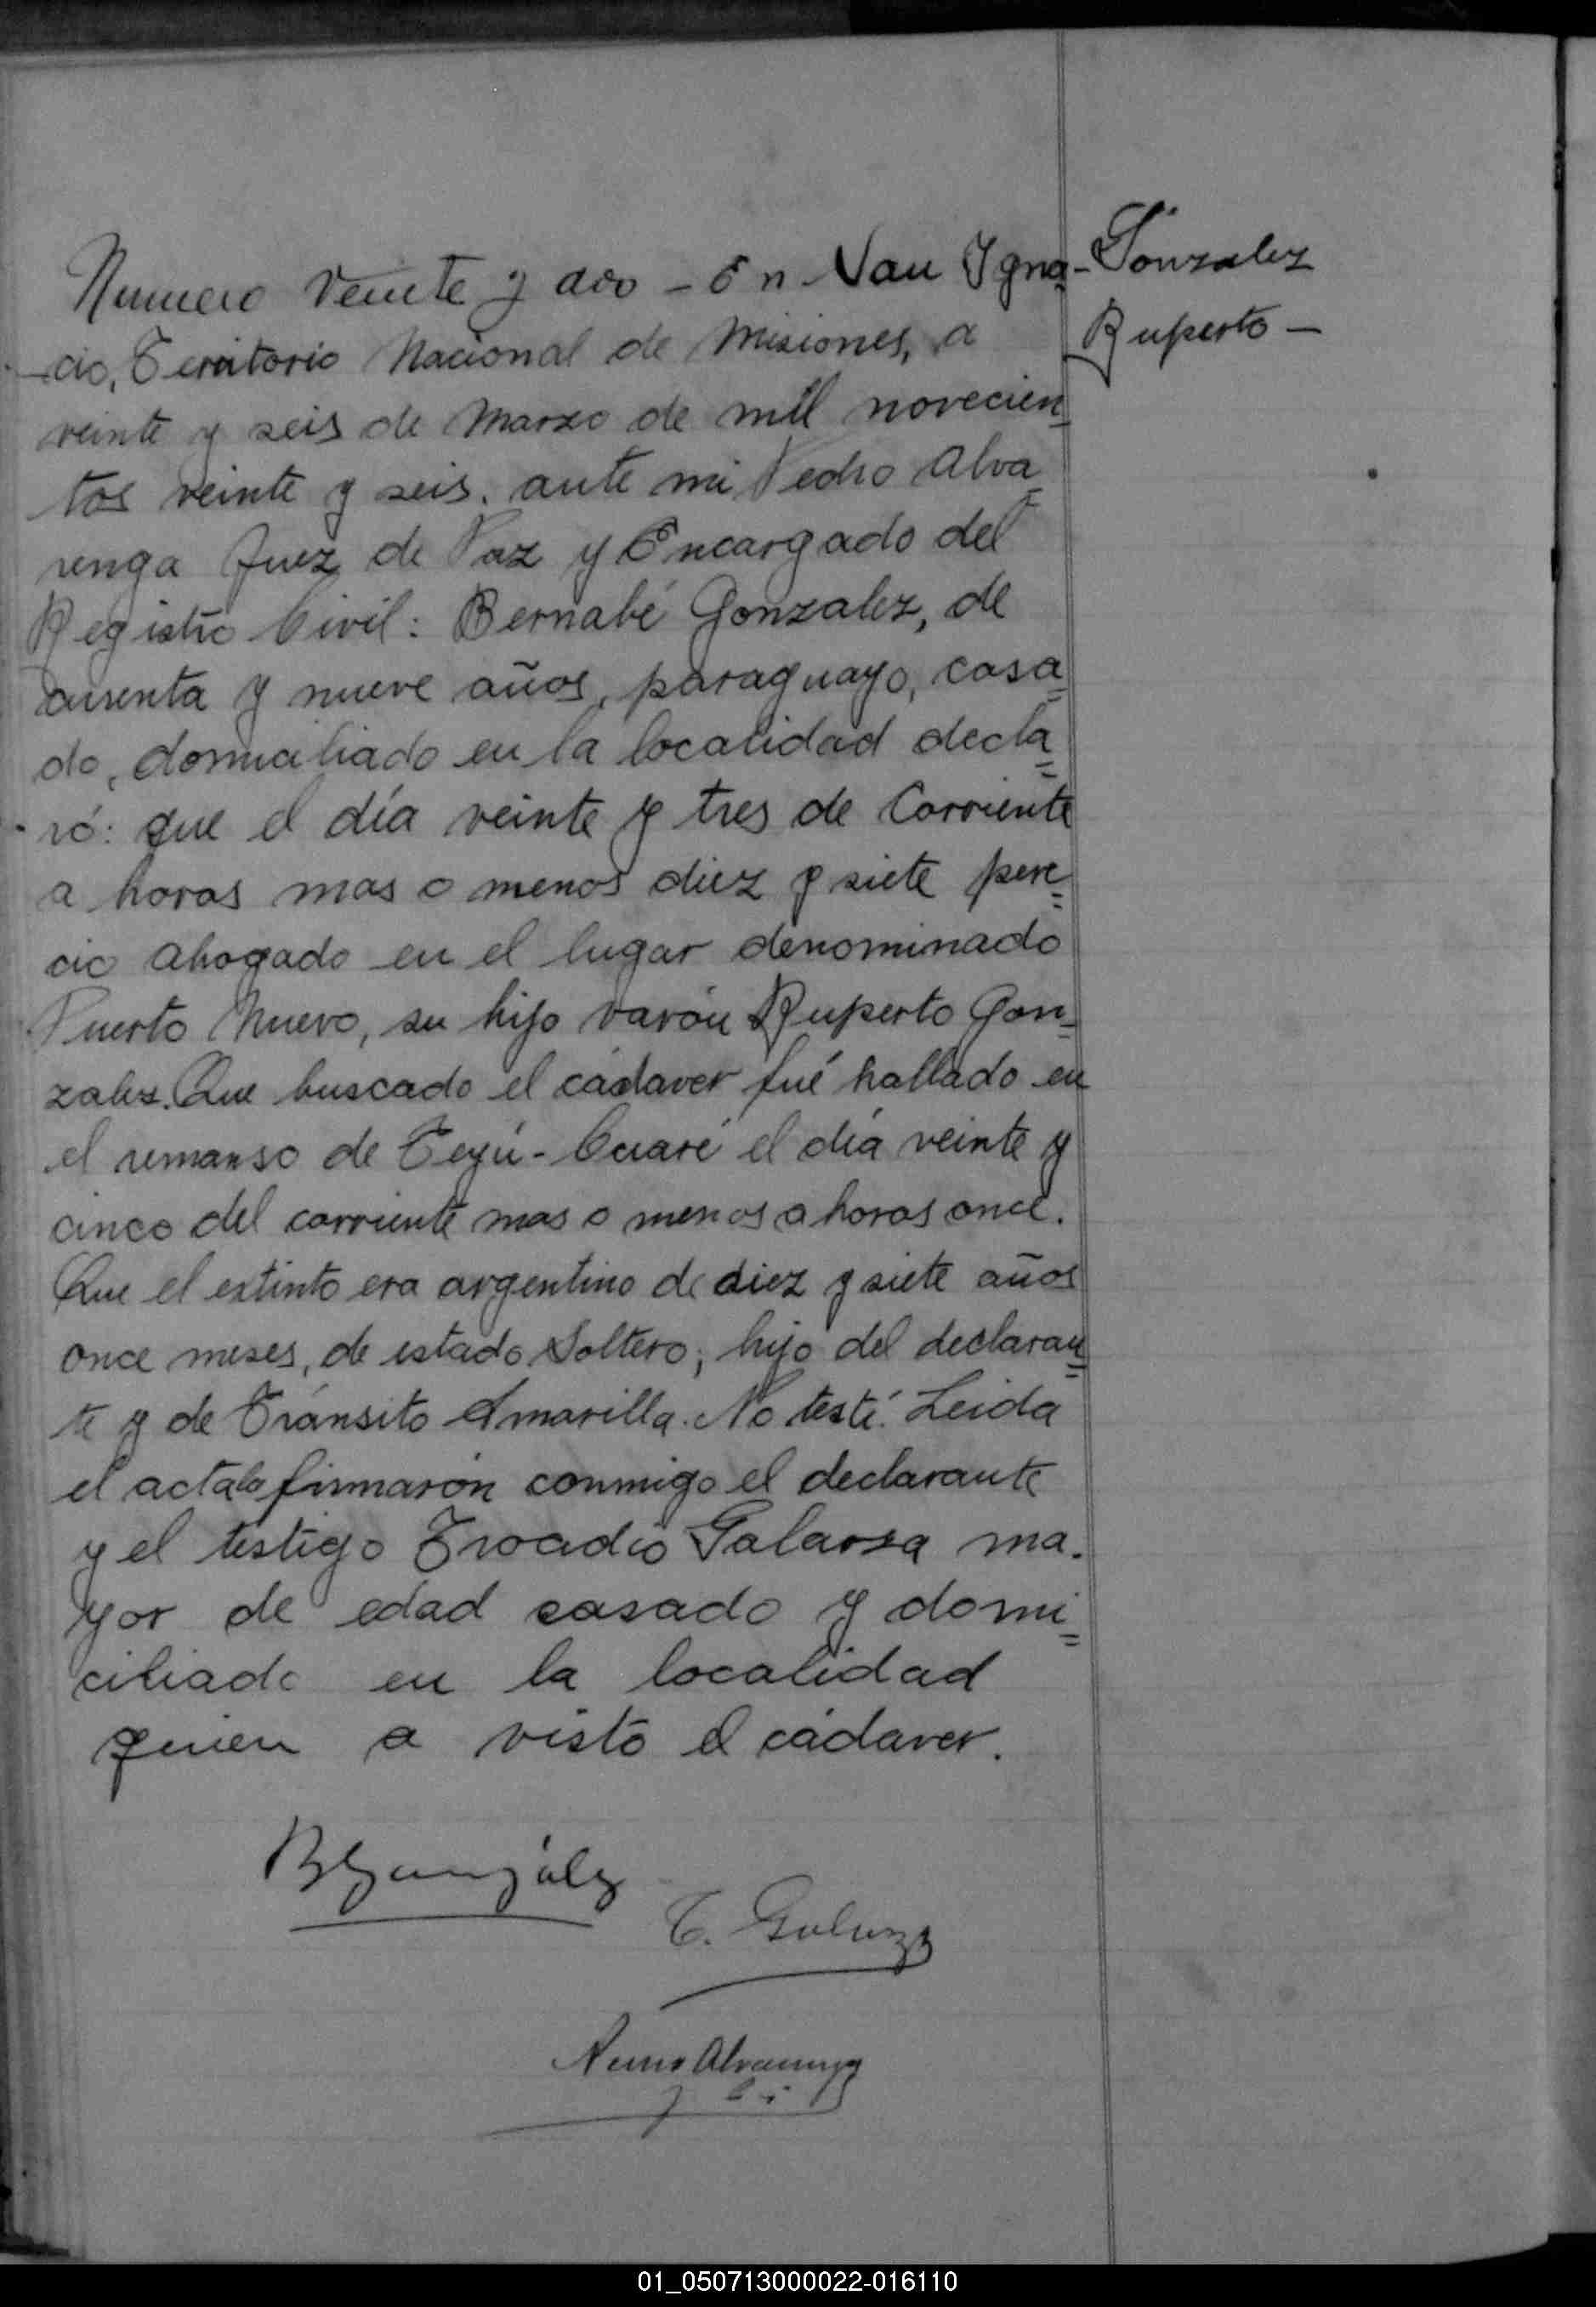 Numero veinte y dos - En San Igna-
cio, Territorio Nacional de Misiones, a
veinte y seis de Marzo de mil novecien-
tos veinte y seis. ante mi Pedro Alva-
renga Juez de Paz y Encargado del
Registro Civil: Bernabé Gonzalez, de
cuarenta y nueve años, paraguayo, casa=
do, domiciliado en la localidad decla=
ró: que el día veinte y tres de Corriente
a horas mas o menos diez y siete pere=
cio ahogado en el lugar denominado
Puerto Nuevo, su hijo varón Ruperto Gon=
zalez. Que buscado el cádaver fué hallado en
el remanso de Teyú-Cuaré el día veinte y
cinco del corriente mas o menos a horas once.
Que el extinto era argentino de diez y siete años
once meses, de estado Soltero; hijo del declaran=
te y de Tránsito Amarilla. No testó. Leida
el acta la firmarón conmigo el declarante
y el testigo Troadio Galarza ma-
yor de edad casado y domi=
ciliado en la localidad
quien a visto el cádaver.
Gonzalez
Ruperto -
B González
T. Galarza
Alvarenga
01_050713000022-016110